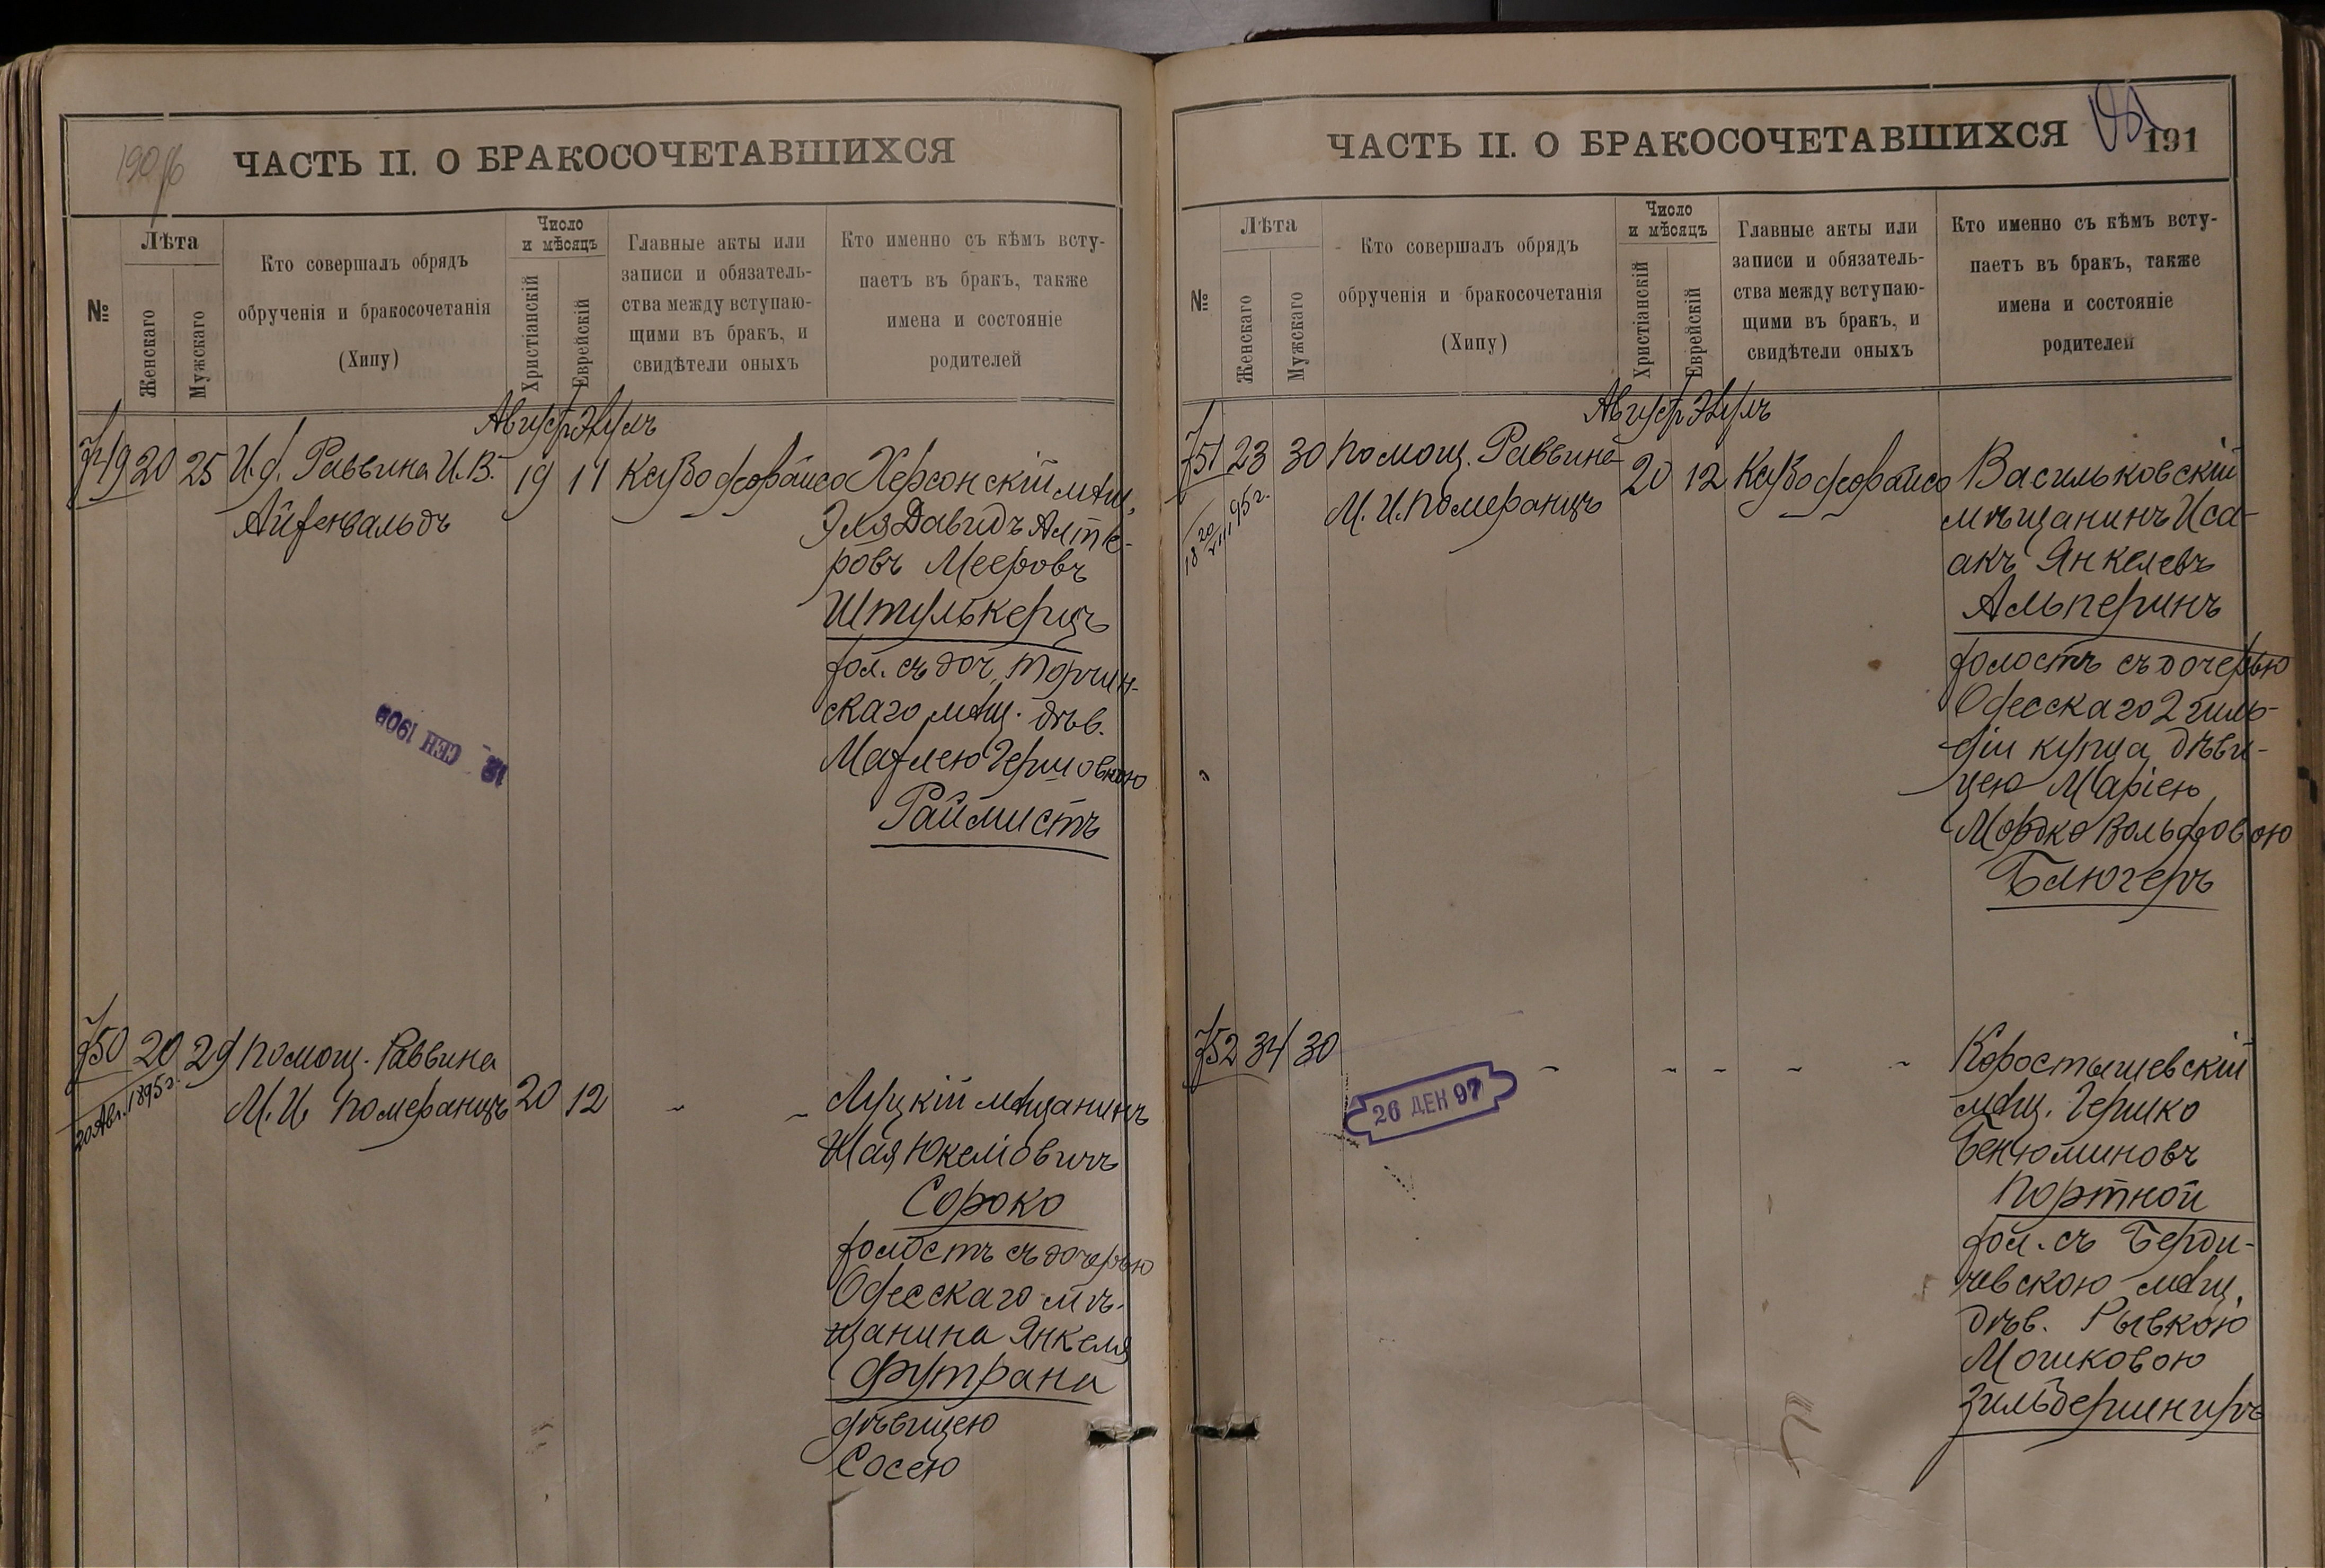 190 об
ЧАСТЬ II. О БРАКОСОЧЕТАВШИХСЯ
№
Лѣта
Женскаго
Мужскаго
Кто совершалъ обрядъ
обрученія и бракосочетанія
(Хипу)
Число
и мѣсяцъ
Христіанскій
Еврейскій
Главные акты или
записи и обязатель-
ства между вступаю-
щими въ бракъ, и
свидѣтели оныхъ
Кто именно съ кѣмъ всту-
паетъ въ бракъ, также
имена и состояніе
родителей
Август Элулъ
749 20 25 И.д. Раввина И.В. 19 11 Херсонскій мѣщ.
Айзенвальдъ
Эля Давидъ Алте-
ровъ Мееровъ
Штулькерцъ
хол. съ доч. Торчин-
скаго мѣщ. дѣв.
Матлею Гершовною
Раймистъ
12 СЕН 190
750 20 29 Помощ. Раввина
20 Авг. 1895 г.
М. И. Померанцъ 20 12 - - Луцкій мѣщанинъ
Шая Юкелiовичъ
Сороко
холостъ съ дочерью
Одесскаго мѣ-
щанина Янкеля
Футрана
дѣвицею
Сосею
191
ЧАСТЬ II. О БРАКОСОЧЕТАВШИХСЯ 191
№
Лѣта
Женскаго
Мужскаго
Кто совершалъ обрядъ
обрученія и бракосочетанія
(Хипу)
Число
и мѣсяцъ
Христіанскій
Еврейскій
Главные акты или
записи и обязатель-
ства между вступаю-
щими въ бракъ, и
свидѣтели оныхъ
Кто именно съ кѣмъ всту-
паетъ въ бракъ, также
имена и состояніе
родителей
Август Элулъ
751 23 30 Помощ. Раввина 20 12 Васильковскій
18 20/VIII 95 г.
М. И. Померанцъ
мѣщанинъ Иса-
акъ Янкелевъ
Альперинъ
холостъ съ дочерью
Одесскаго 2 гиль-
діи купца дѣви-
цею Маріею
Мордко Вольфовою
Блюгеръ
752 34 30 - - - - - Коростышевскій
26 ДЕК 97
мѣщ. Гершко
Бенюминовъ
Портной
хол. съ Берди-
чевскою мѣщ.
дѣв. Рывкою
Мошковою
Зильбершниръ